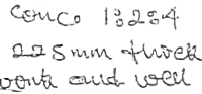 conco 1:2:4
225mm thick
work and well